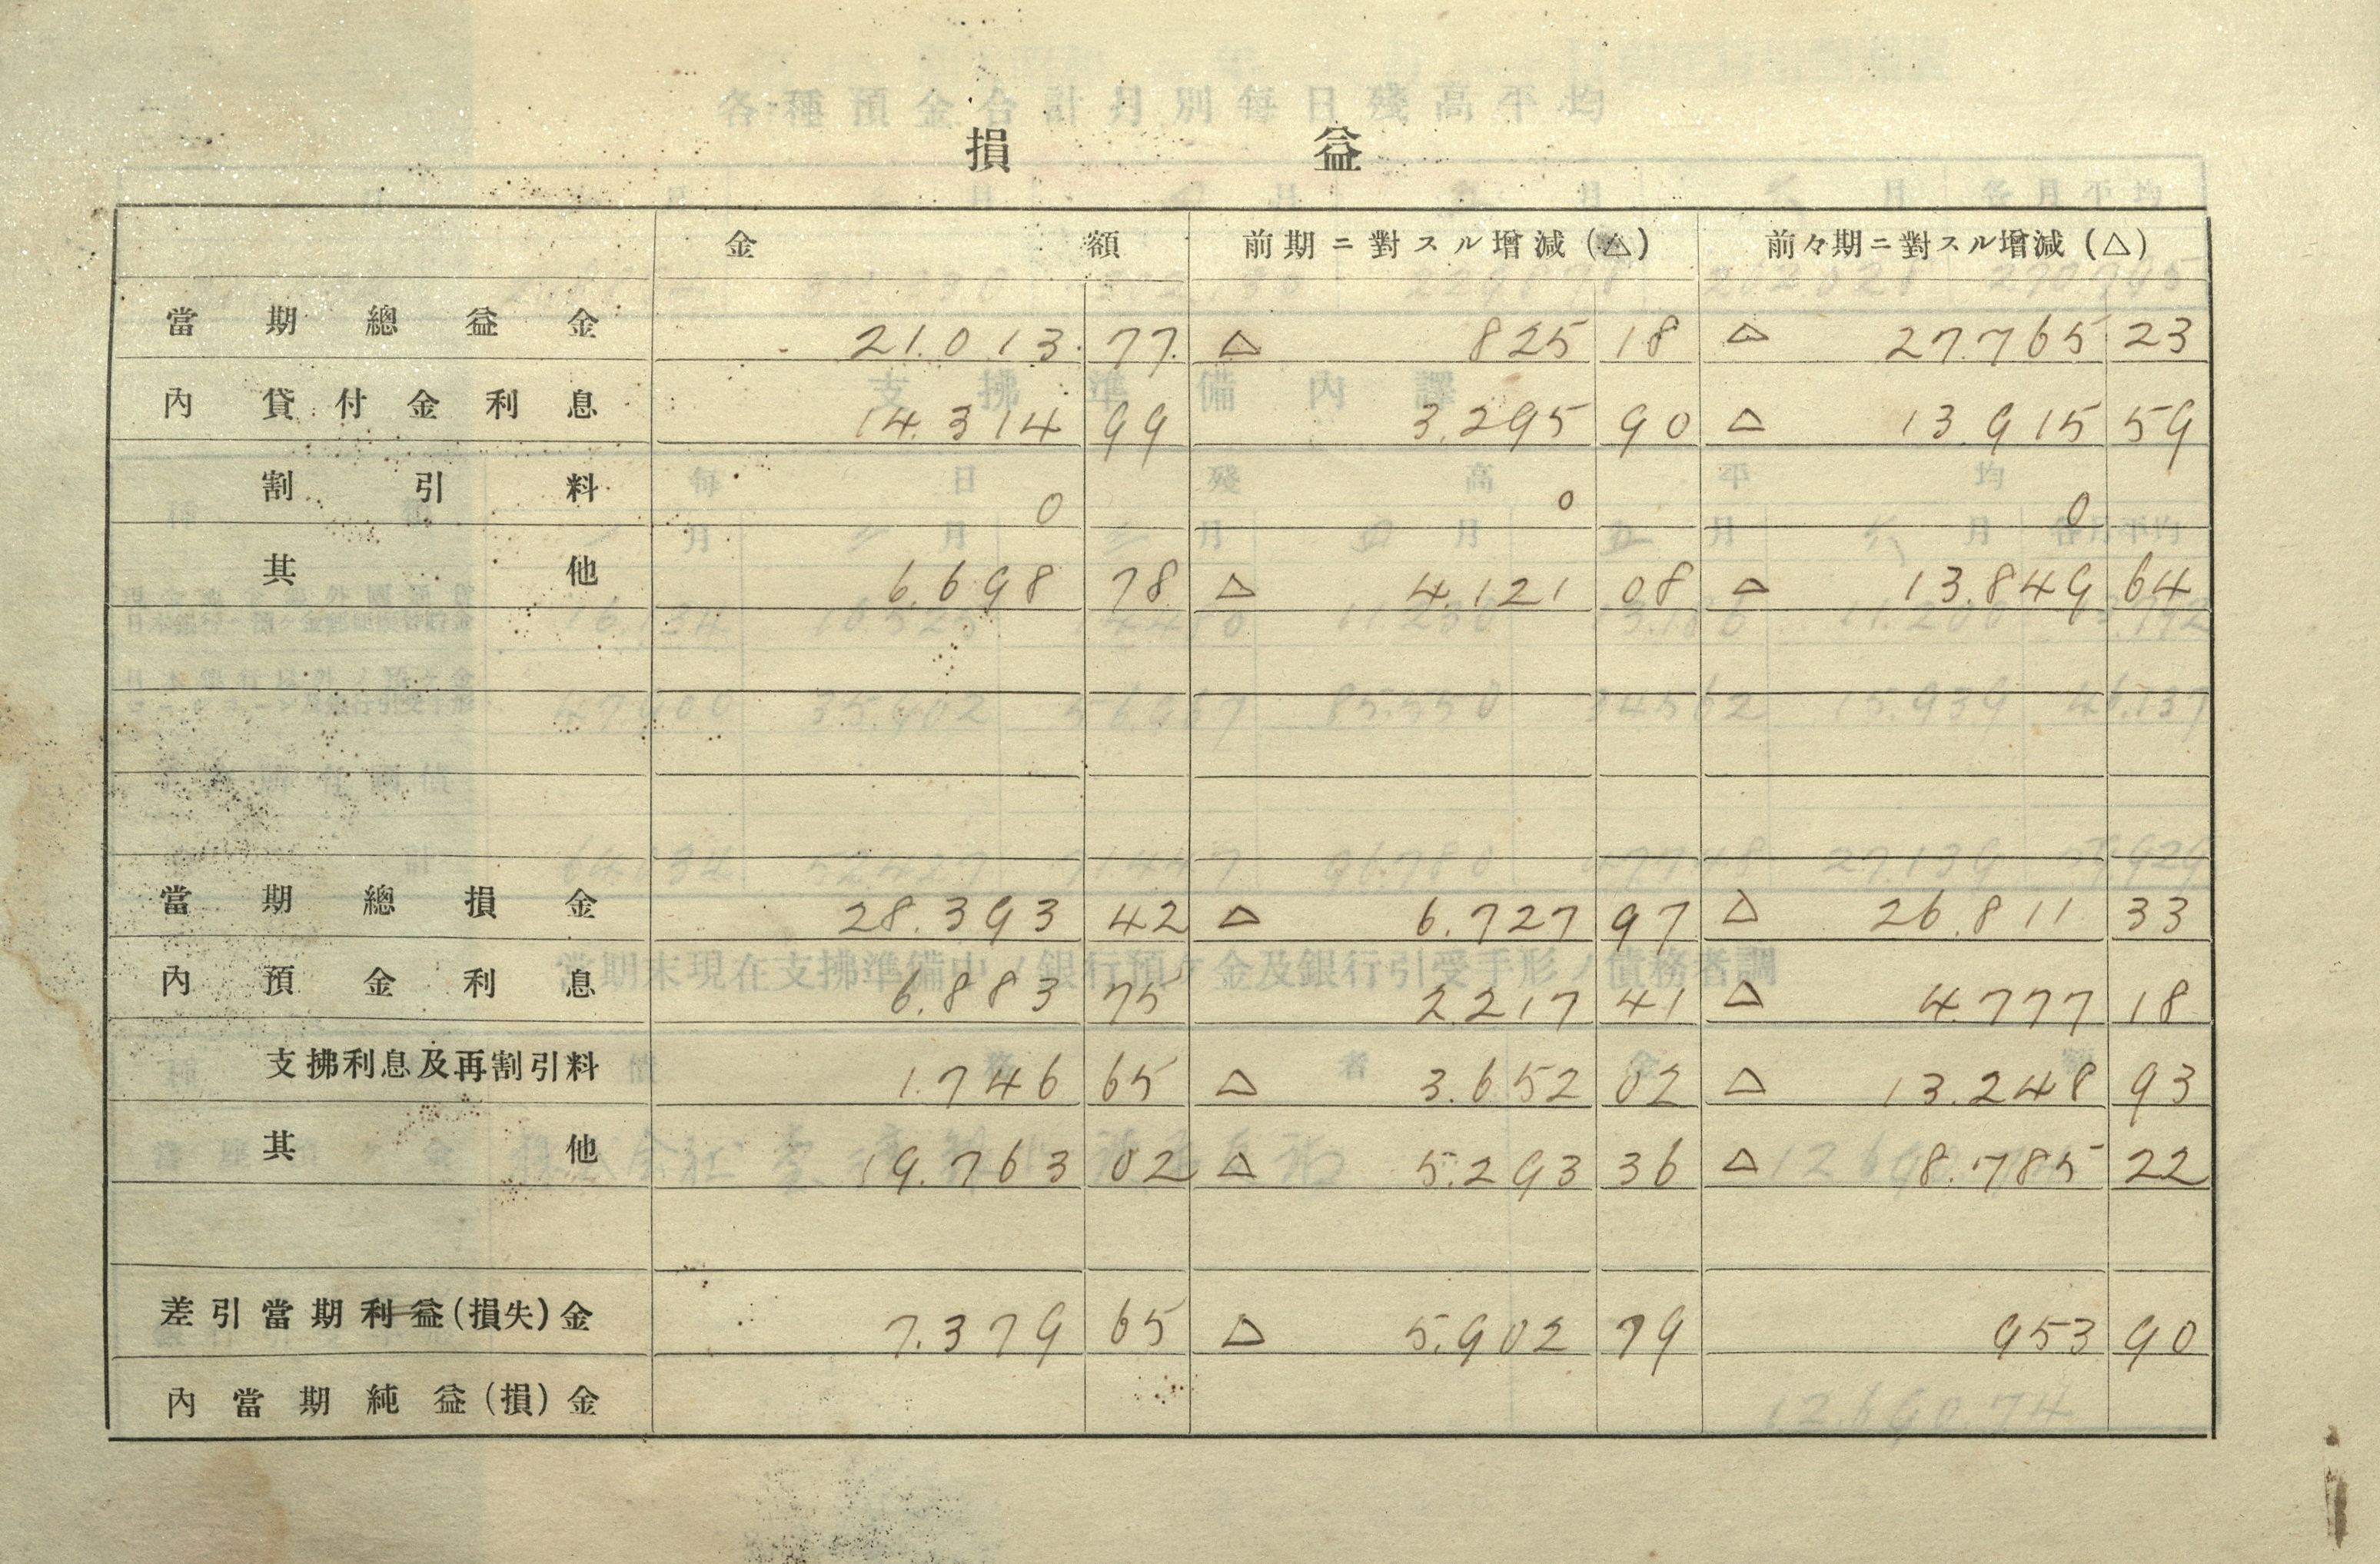 損益
金額 前期ニ對スル增減(△) 前々期ニ對スル增減(△)
當期總益金 21.013.77. △ 825 18 △ 27.765 23
內 貸付金利息 14.314 99 3.295 90 △ 13.915 59
割引料 0 0 0
其他 6.698 78 △ 4.121 08 △ 13.849 64
當期總損金 28.393 42 △ 6.727 97 △ 26.811 33
內 預金利息 6.883 75 2.217 41 △ 4.777 18
支拂利息及再割引料 1.746 65 △ 3.652 02 △ 13.248 93
其他 19.763 02 △ 5.293 36 △ 8.785 22
差引當期利益(損失)金 7.379 65 △ 5.902 79 953 90
內當期純益(損)金